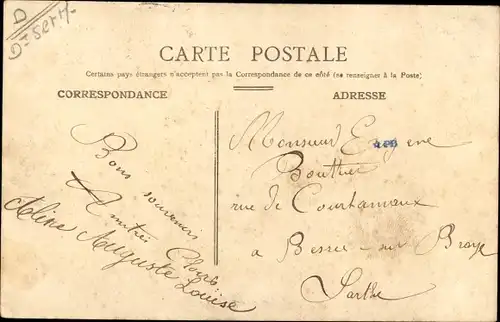 D
D. Serv.
CARTE POSTALE
Certains pays étrangers n'acceptent pas la Correspondance de ce côté (se renseigner à la Poste)
CORRESPONDANCE
ADRESSE
Bons souvenirs
Amitiés
Aline Auguste
Louise
Monsieur Eugène
Bouttier
rue de Courtanvaux
a Bessé-sur Braye
Sarthe